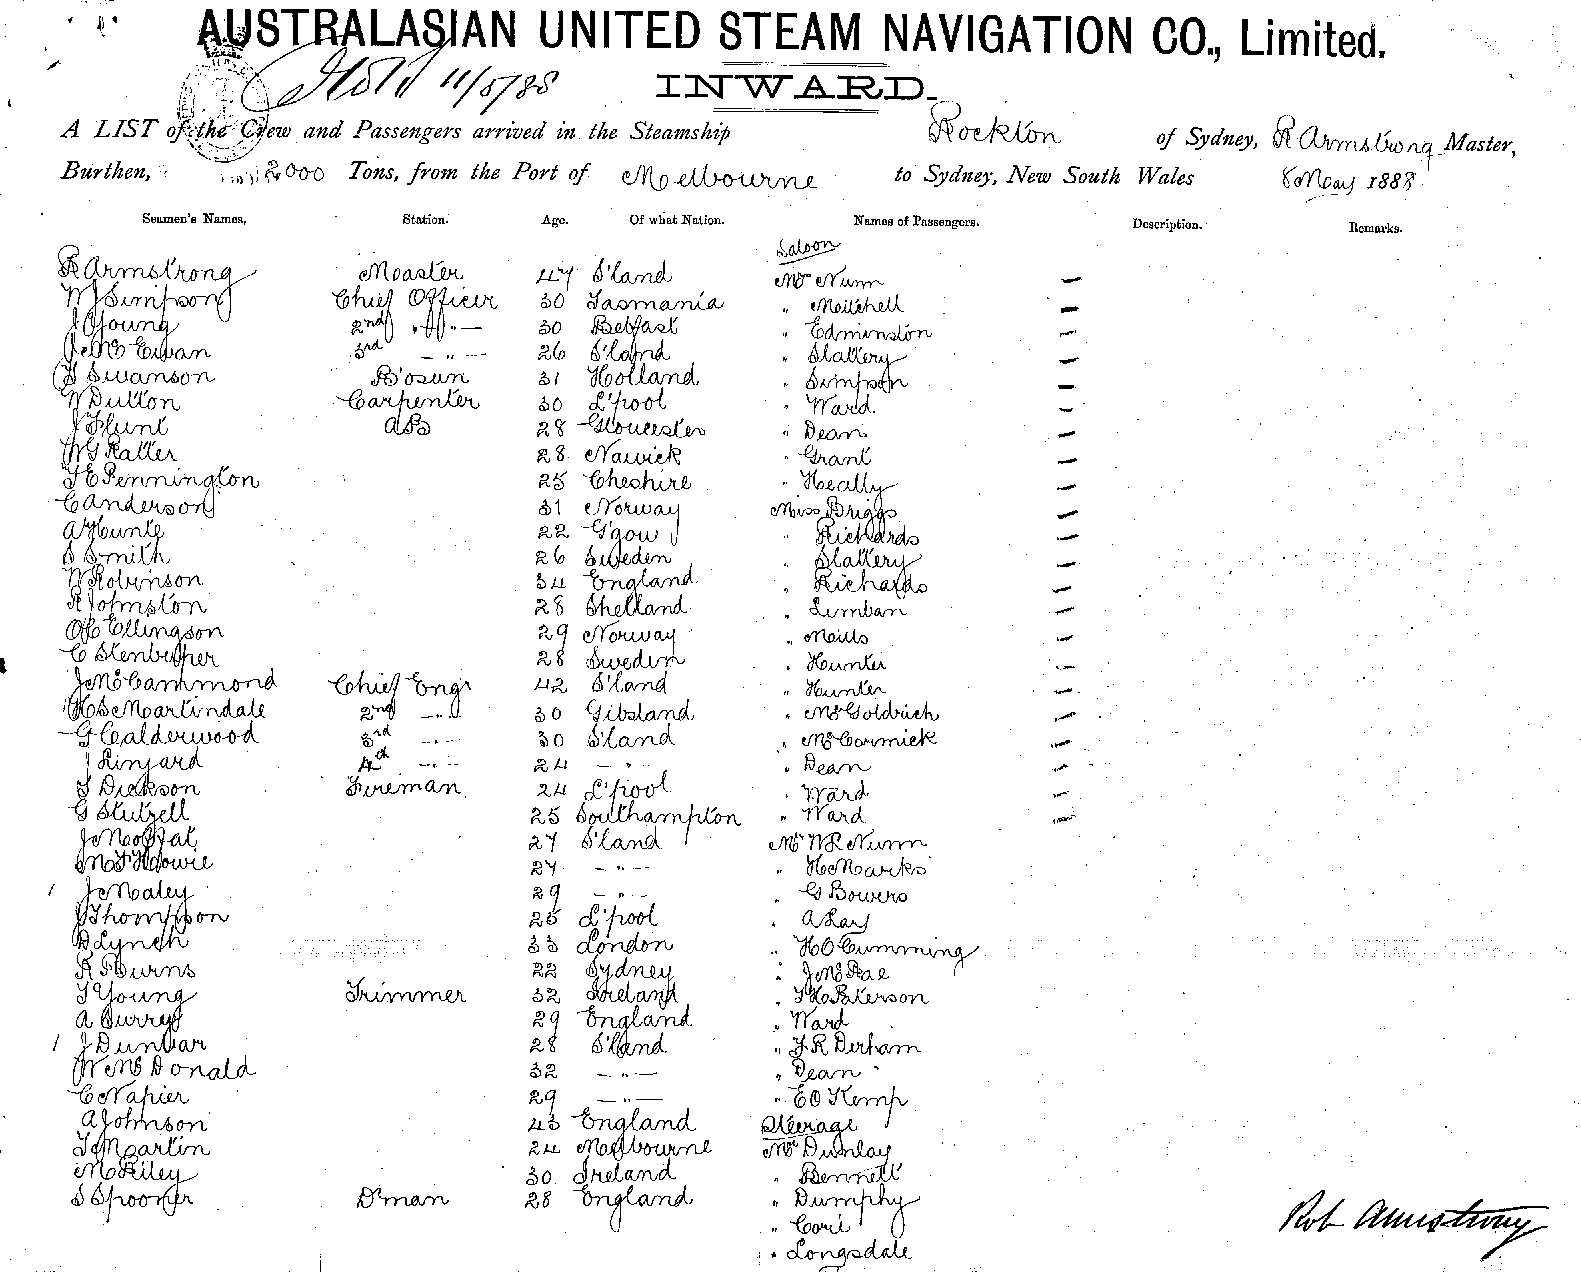 AUSTRALASIAN UNITED STEAM NAVIGATION CO., Limited.
11/5/88
INWARD.
A LIST of the Crew and Passengers arrived in the Steamship Rockton of Sydney, R Armstrong Master,
Burthen, 2000 Tons, from the Port of Melbourne to Sydney, New South Wales 8 May 1888
Seamen's Names. Station. Age. Of what Nation. Names of Passengers. Description. Remarks.
Saloon
R Armstrong Master 47 S'land Mrs Nunn —
W J Simpson Chief Officer 30 Tasmania " Mitchell —
J Young 2nd " — 30 Belfast " Edminston —
J McEwan 3rd — " — 26 S'land " Slattery —
Swanson B'osun 31 Holland " Simpson —
W Dutton Carpenter 30 L'pool " Ward —
J Hunt AB 28 Gloucester " Dean —
W G Ratter 28 " Grant —
Pennington 25 Cheshire " Heally —
C Anderson 31 Norway Miss Briggs —
A 22 G'gow " Richards —
S Smith 26 Sweden " Slattery —
W Robinson 34 England " Richards —
R Johnston 28 Shetland " —
Ellingson 29 Norway " —
C 28 Sweden " Hunter —
J McCammond Chief Engr 42 S'land " Hunter —
Martindale 2nd — " 30 " McGoldrich —
G Calderwood 3rd — " — 30 S'land " McCormick —
4th — " — 24 — " — " Dean —
Dickson Fireman 24 L'pool " Ward —
G 25 Southampton " Ward —
J Moffat 27 S'land Mr W R Nunn
Howie 27 — " — " H Marks
J Maley 29 — " — " G Bowers
J Thompson 25 L'pool " A
D Lynch 33 London " H O Cumming
R Burns 22 Sydney " J McRae
Young Trimmer 32 Ireland " Paterson
A Currey 29 England " Ward
J Dunbar 28 S'land " F R Derham
W McDonald 32 — " — " Dean
C Napier 29 — " — " E O Kemp
A Johnson 43 England Steerage
Martin 24 Melbourne Mr Dunlay
M Riley 30 Ireland " Bennett
S Spooner D'man 28 England " Dumphy
"
" Longsdale
Rob Armstrong